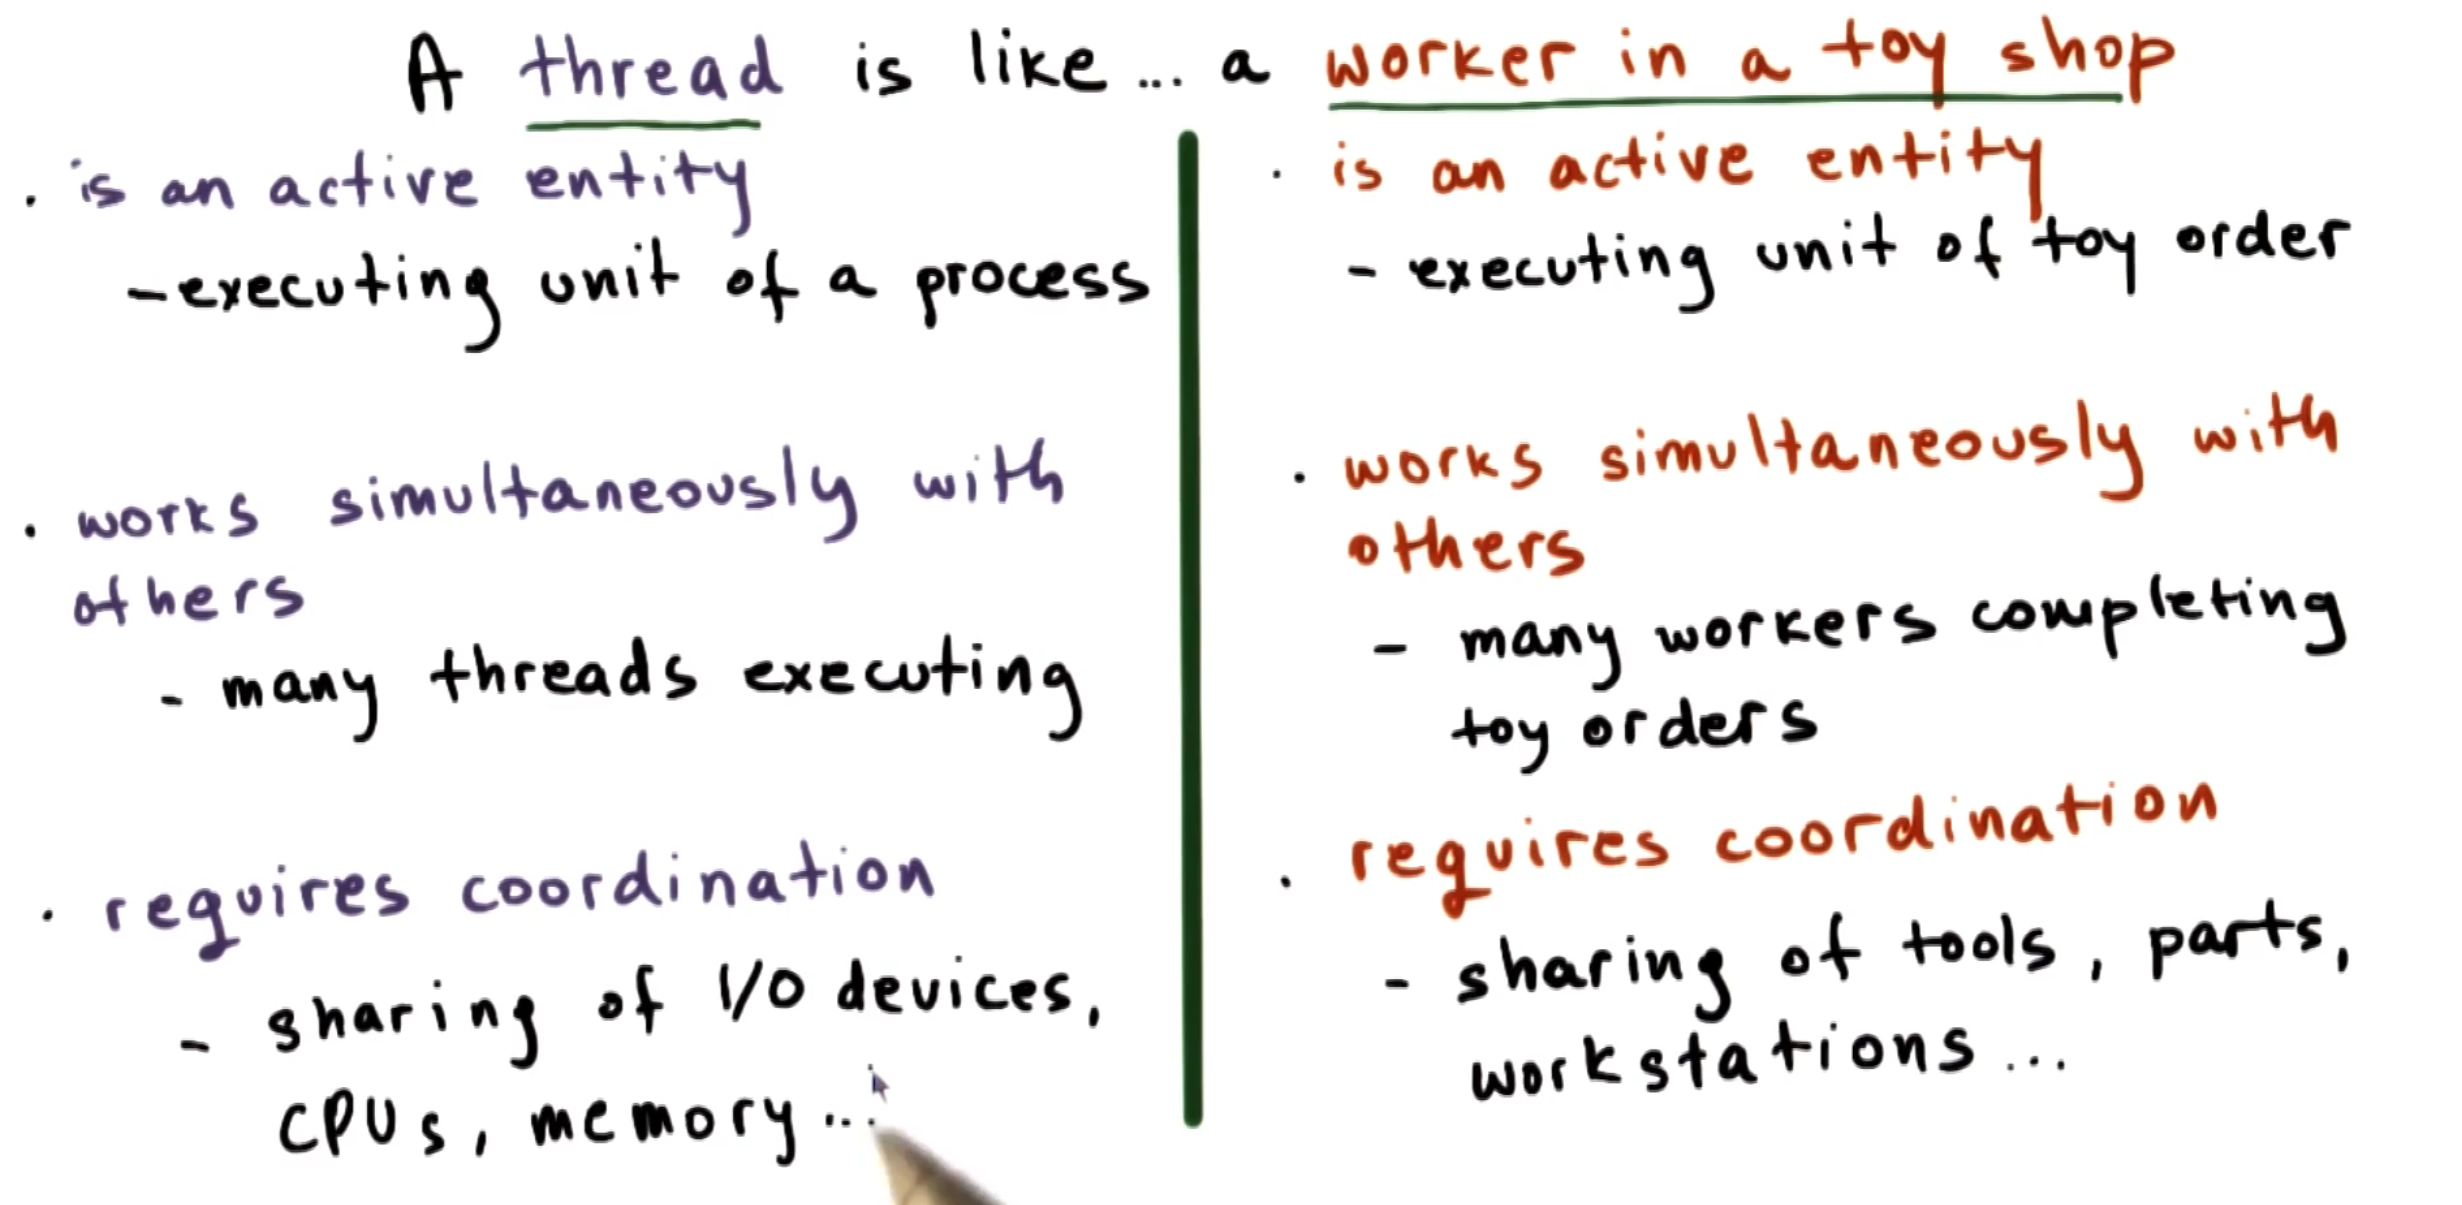 A thread is like... a worker in a toy shop
. is an active entity
- executing unit of a process
. works simultaneously with
others
- many threads executing
. requires coordination
- sharing of I/O devices,
CPUs, memory...
. is an active entity
- executing unit of toy order
. works simultaneously with
others
- many workers completing
toy orders
. requires coordination
- sharing of tools, parts,
workstations...